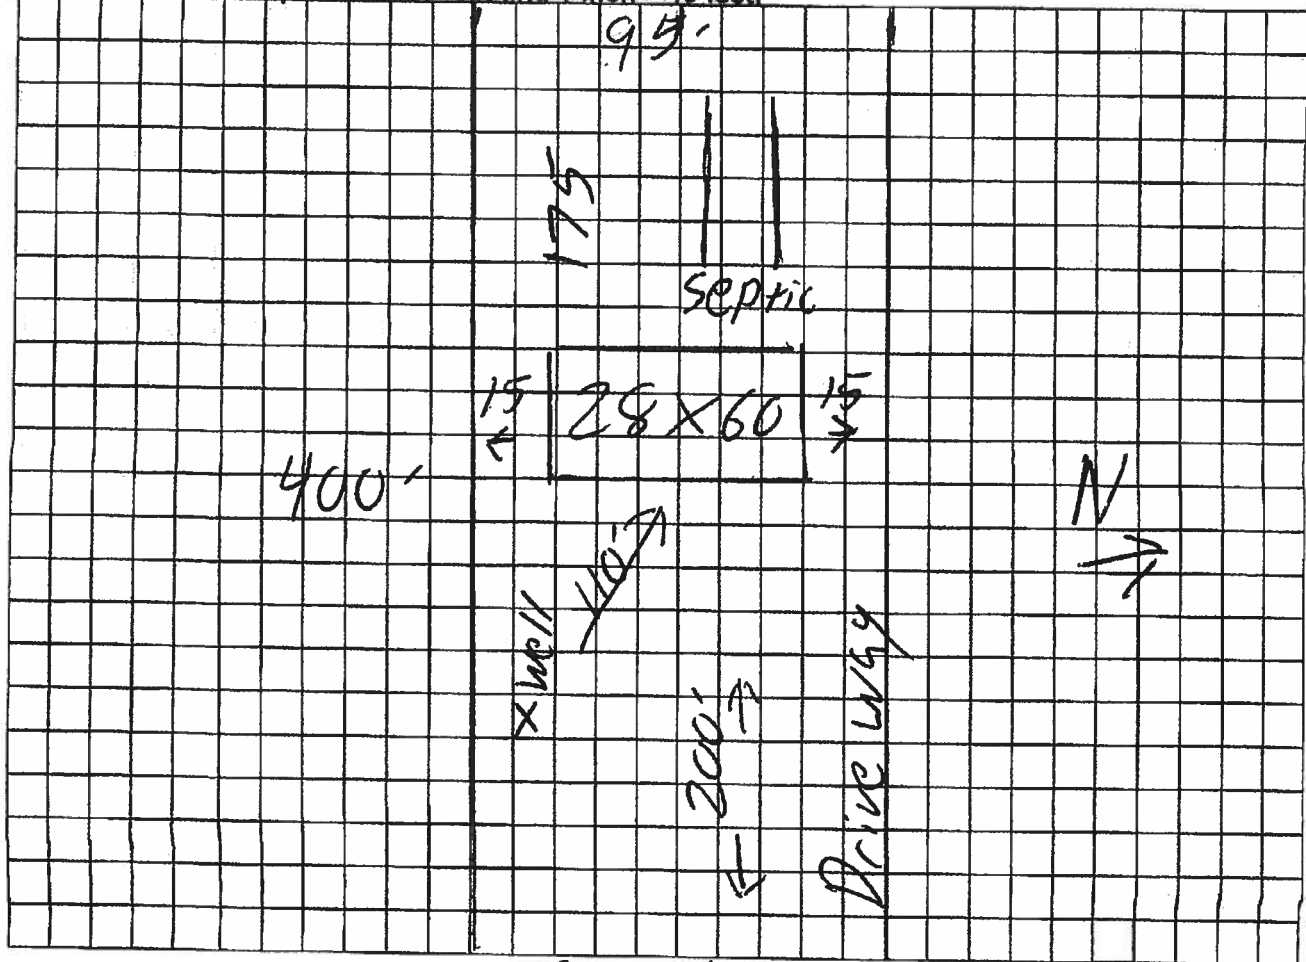 95'
175
septic
15
28 X 60
15
400'
N
110'
X well
200'
Drive way